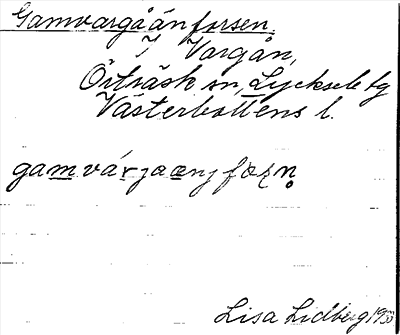 Gamvargåånforsen.
I Vargån,
Örträsk sn, Lycksele tg
Västerbottens l.
gamvárjaænj fɔʂn̥
Lisa Lidberg 1933